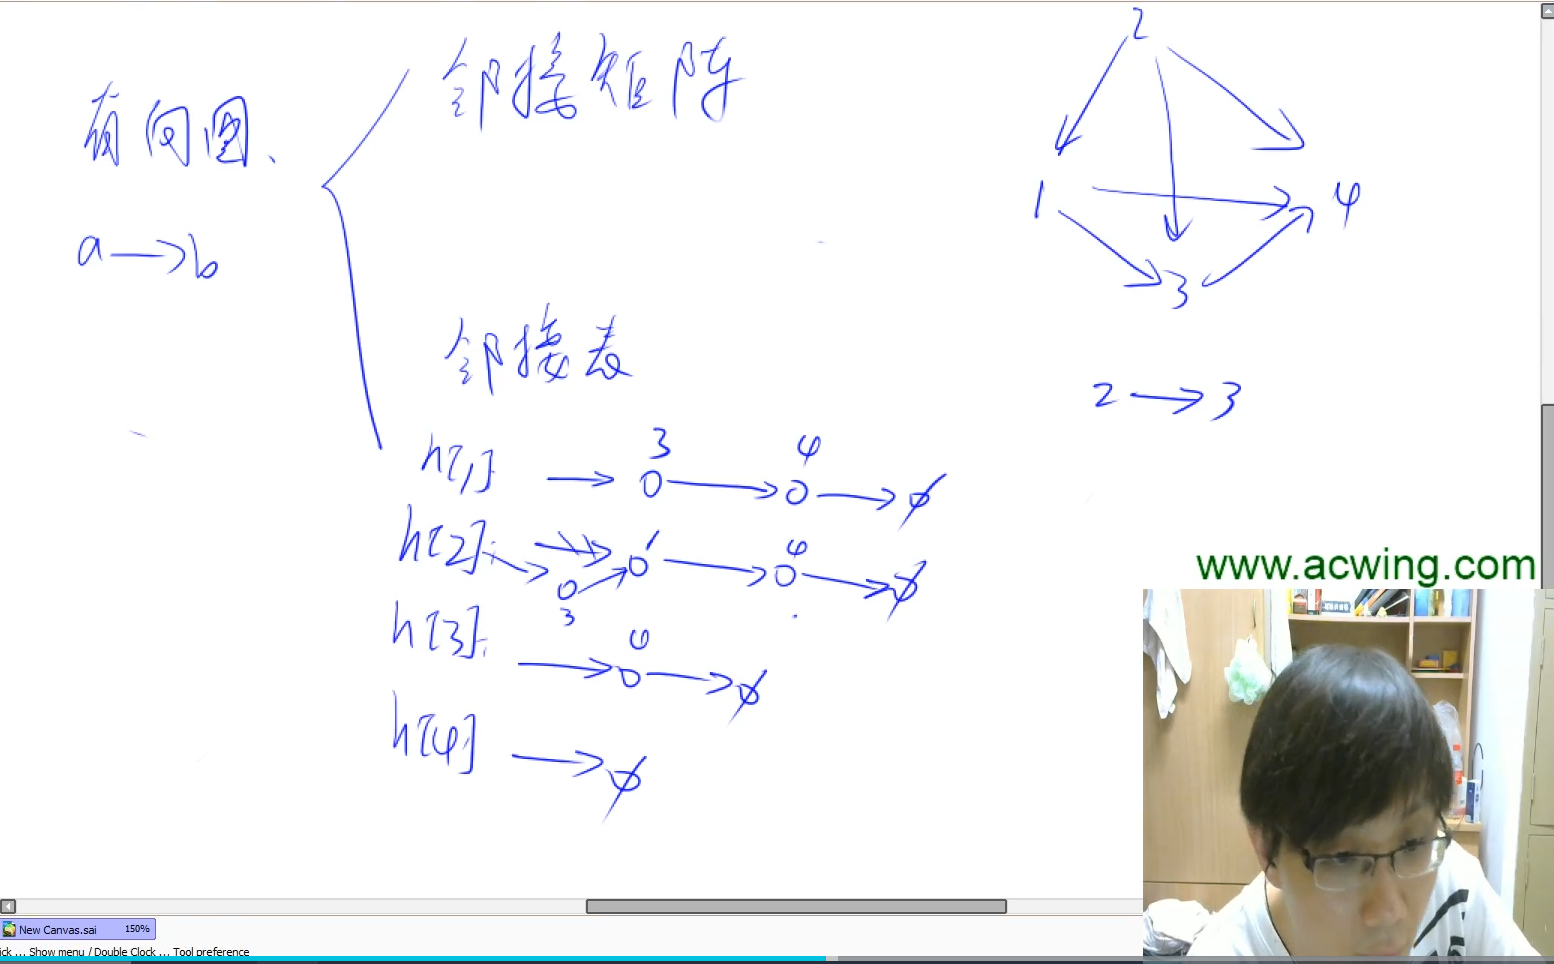 有向图、
a→b
邻接矩阵
邻接表
h[1] → 3 → 4 → ∅
h[2]: → 3 → 1 → 4 → ∅
h[3]: → 4 → ∅
h[4] → ∅
2
1
4
3
2→3
www.acwing.com
New Canvas.sai 150%
ick ... Show menu / Double Clock ... Tool preference